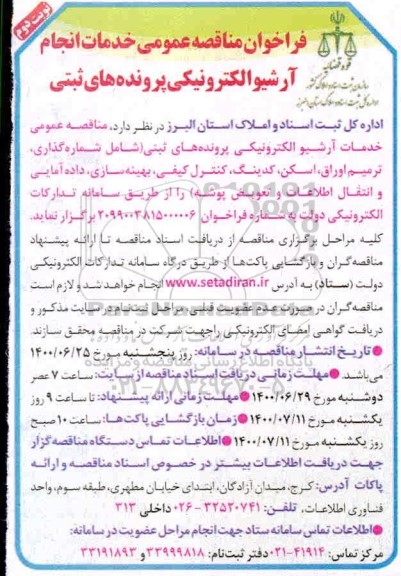 نوبت دوم
فراخوان مناقصه عمومی خدمات انجام
آرشیو الکترونیکی پرونده‌های ثبتی
قوه قضائیه
سازمان ثبت اسناد و املاک کشور
اداره کل ثبت اسناد و املاک استان البرز
اداره کل ثبت اسناد و املاک استان البرز در نظر دارد، مناقصه عمومی
خدمات آرشیو الکترونیکی پرونده‌های ثبتی (شامل شماره‌گذاری،
ترمیم اوراق، اسکن، کدینگ، کنترل کیفی، بهینه‌سازی، داده‌آمایی
و انتقال اطلاعات و تعویض پوشه) را از طریق سامانه تدارکات
الکترونیکی دولت به شماره فراخوان ۲۰۹۹۰۰۳۸۱۵۰۰۰۰۰۶ برگزار نماید.
کلیه مراحل برگزاری مناقصه از دریافت اسناد مناقصه تا ارائه پیشنهاد
مناقصه‌گران و بازگشایی پاکت‌ها از طریق درگاه سامانه تدارکات الکترونیکی
دولت (ستاد) به آدرس www.setadiran.ir انجام خواهد شد و لازم است
مناقصه‌گران در صورت عدم عضویت قبلی، مراحل ثبت‌نام در سایت مذکور و
دریافت گواهی امضای الکترونیکی را جهت شرکت در مناقصه محقق سازند.
●تاریخ انتشار مناقصه در سامانه: روز پنجشنبه مورخ ۱۴۰۰/۰۶/۲۵
می‌باشد. ●مهلت زمانی دریافت اسناد مناقصه از سایت: ساعت ۷ عصر
دوشنبه مورخ ۱۴۰۰/۰۶/۲۹ ●مهلت زمانی ارائه پیشنهاد: تا ساعت ۹ روز
یکشنبه مورخ ۱۴۰۰/۰۷/۱۱ ●زمان بازگشایی پاکت‌ها: ساعت ۱۰ صبح
روز یکشنبه مورخ ۱۴۰۰/۰۷/۱۱ ●اطلاعات تماس دستگاه مناقصه‌گزار
جهت دریافت اطلاعات بیشتر در خصوص اسناد مناقصه و ارائه
پاکات آدرس: کرج، میدان آزادگان، ابتدای خیابان مطهری، طبقه سوم، واحد
فناوری اطلاعات، تلفن: ۳۲۵۲۰۷۴۱-۰۲۶ داخلی ۳۱۳
●اطلاعات تماس سامانه ستاد جهت انجام مراحل عضویت در سامانه:
مرکز تماس: ۴۱۹۱۴-۰۲۱ دفتر ثبت‌نام: ۳۳۹۹۹۸۱۸ و ۳۳۱۹۱۸۹۳